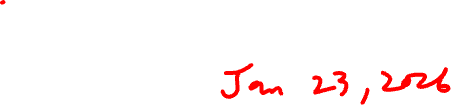 Jan 23, 2026